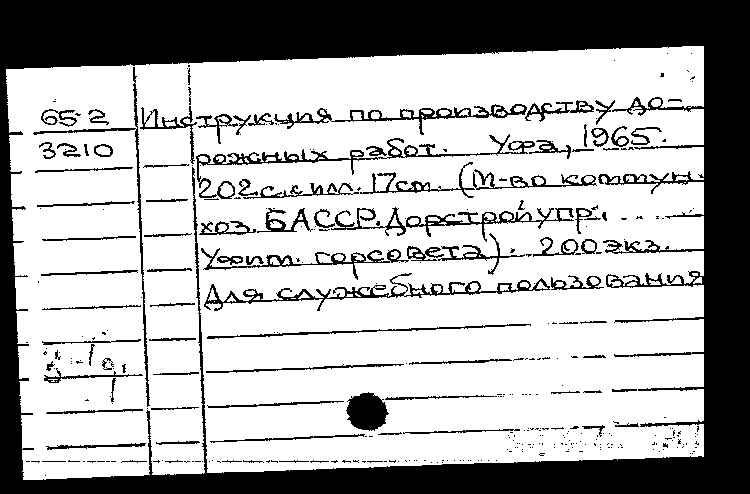 65-2 Инструкция по производству до-
3210 рожных работ. Уфа, 1965.
202 с. с илл. 17 см. (М-во коммун.
хоз. БАССР. Дорстройупр.
Уфим. горсовета). 200 экз.
Для служебного пользования